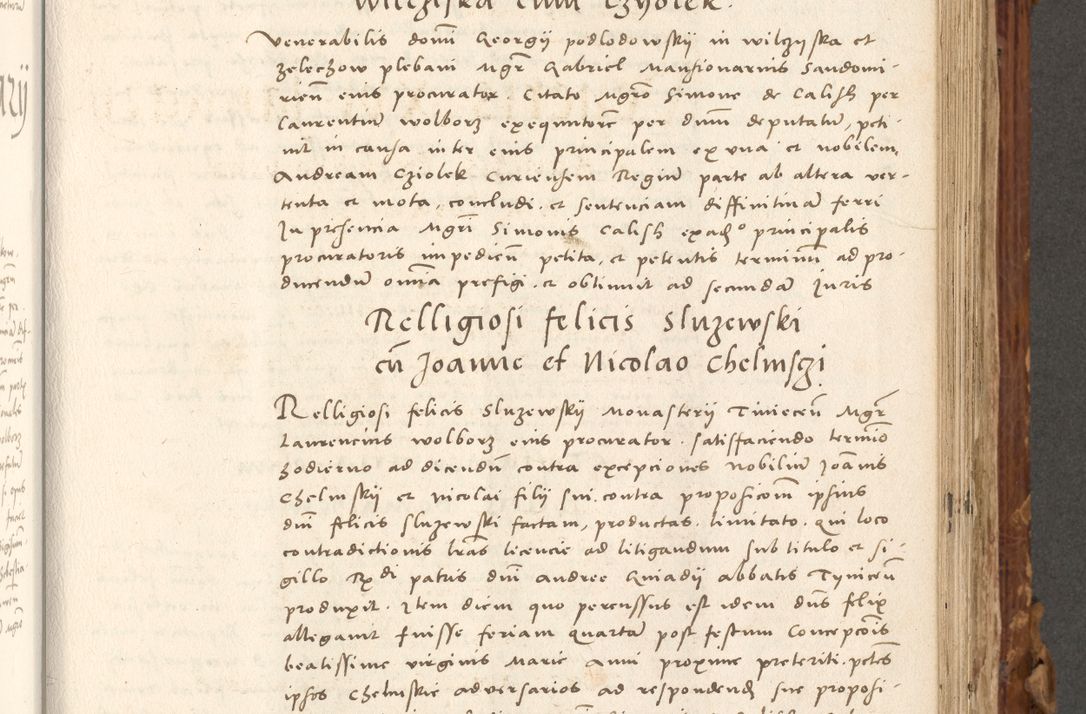 Wilczyska cum Czyolek.
Venerabilis domĩ Georgij podlodowskij in wilczyska et
Zelechow plebani Mgr̃ Gabriel Mansionarius Sandomi-
rieñ eius procurator. Citato Mgrõ Simone de Calish per
Laurentiũ wolborz exequutorẽ per dnũm deputatũ, peti-
uit in causa inter eius principalem ex vna et nobilem
Andream Cziolek Curiensem Regiũ parte ab altera ver-
tenta et mota, concludi. et sentenciam diffinitiuã ferri
In pñsencia Mgrĩ Simonis Calish ex adso principalis
procuratoris impedieñ petita, et petentis terminũm ad pro-
ducendũ omĩa prefigi. et obtinuit ad secundã Iuris
Relligiosi felicis Sluzewski
cũ Ioanne et Nicolao Chelmsczi.
Relligiosi felicis Sluzewskij Monasterij Tinieceñ Mgr̃
Laurencius wolborz eius procurator. satisfaciendo termĩo
hodierno ad dicendũ contra excepciones Nobiliũ Ioãnis
Chelmskij et Nicolai filij sui. contra proposicoñi ipsius
dnĩ felicis Sluzewski factam, productas. limitato. qui loco
contradictionis lrãs licencie ad litigandum sub titulo et si-
gillo Rxdi patris dnĩ Andree Gniadij abbatis Tyniceñ
produxit. Item diem quo percussus est idem dñs felix
allegauit fuisse feriam quartã post festum Concepcõis
beatissime virginis Marie Anni proxime preteriti. petẽs
ipsos Chelmskie aduersarios ad respondendũ sue proposi-